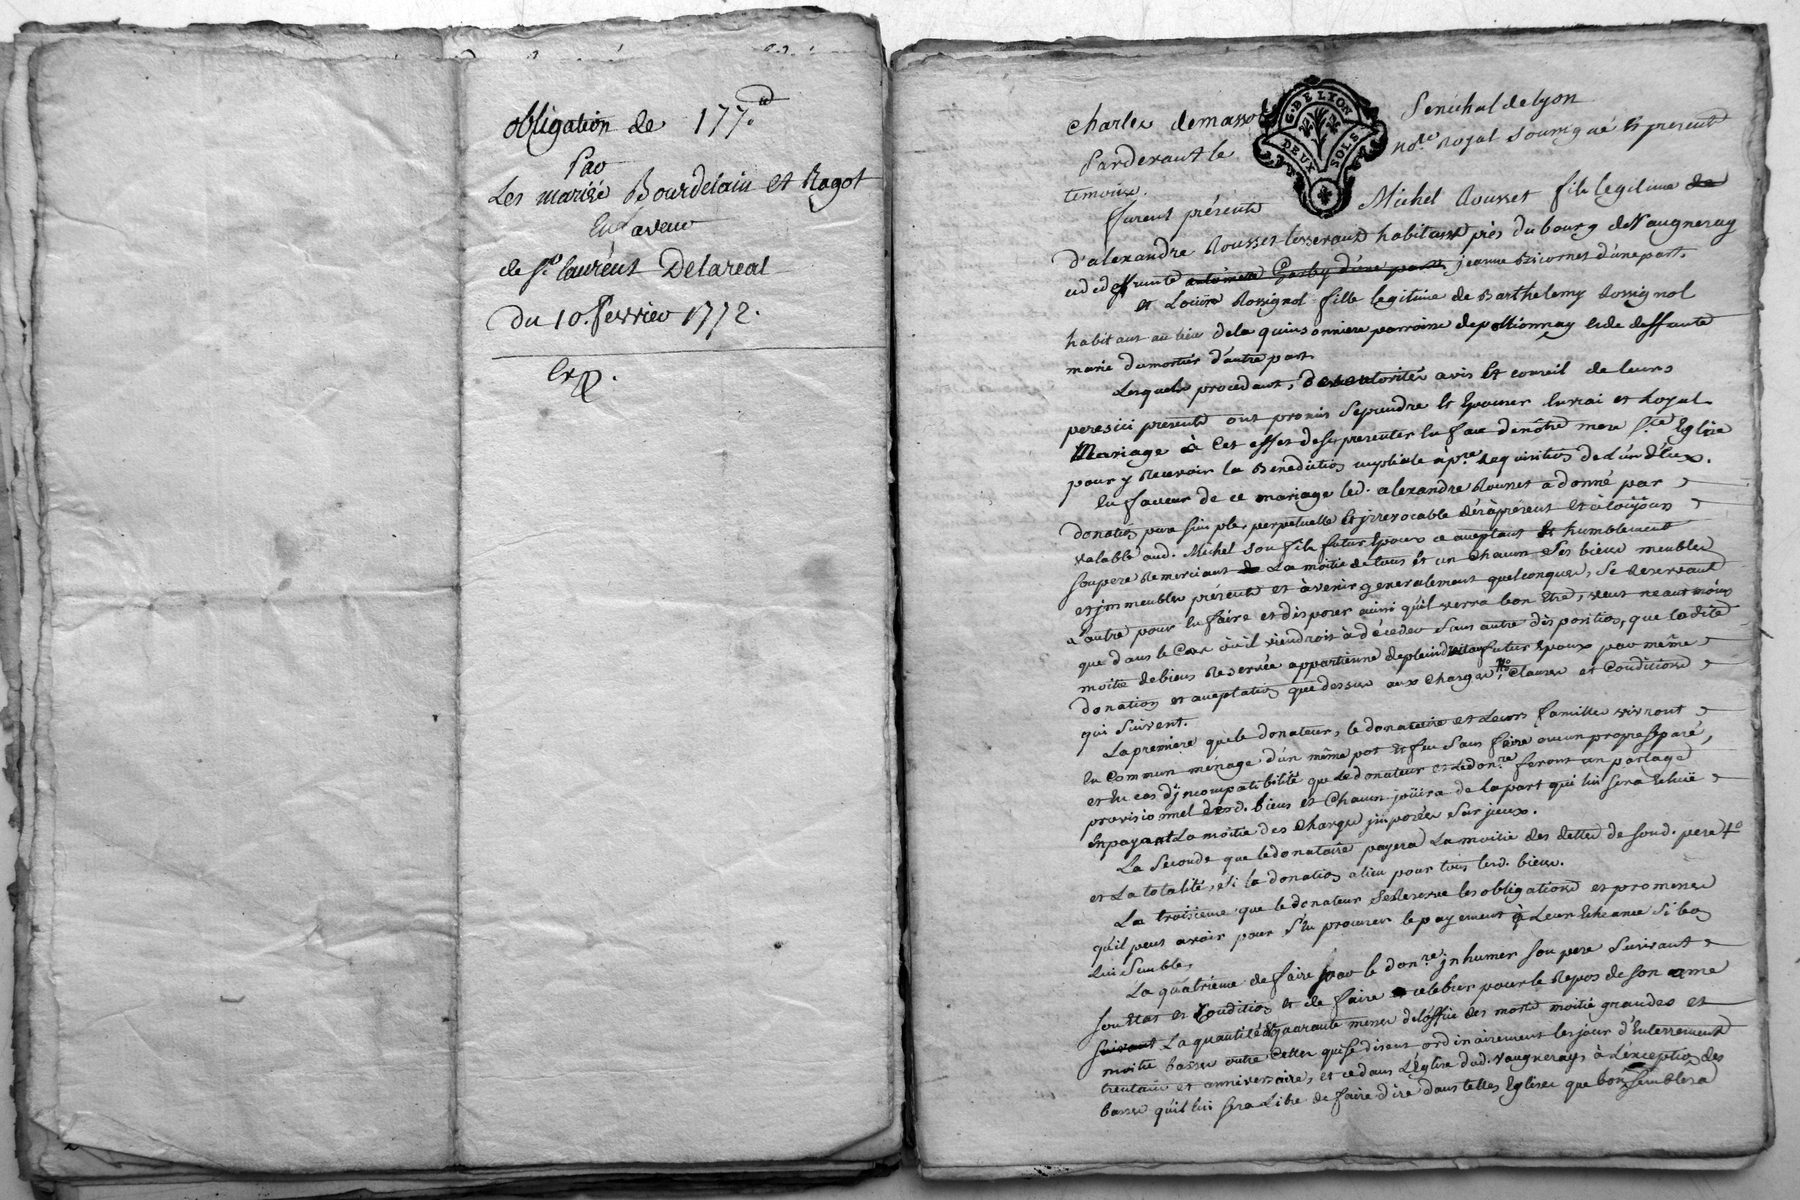 obligation de 177.ᵗᵗ
Par
Les mariés Bourdelain et Ragot
En faveur
de S.ʳ laurent Delareal
Du 10. fevrier 1772.
Exp.
Charles demasso Senéchal de lyon
G. DE LYON
DEUX SOLS
Pardevant le no.ʳᵉ Royal soussigné et presents
temoins.
furent présents Michel Rousset fils legitime de
d'alexandre Rousset tisserand habitant près du bourg de Vaugneray
et de deffunte jeanne Bicornet d'une part.
et Louise Rossignol fille legitime de Barthelemy Rossignol
habitant au lieu de la quinsonniere parroisse de pollionnay et de deffunte
marie dumortier d'autre part.
Lesquels procedants, de autorités avis et conseil de leurs
peres ici presents ont promis se prendre et Epouser en vrai et Loyal
Mariage à cet effet de se presenter en face de nôtre mere s.ᵗᵉ Eglise
pour y Recevoir la Benediction nuptiale à p.ʳᵉ Requisition de L'un d'Eux.
En faveur de ce mariage led. alexandre Rousset a donné par
donation pure simple, perpetuelle et jrrevocable dés à présent et à toujours
valable aud. Michel son fils futur Epoux ce acceptant et humblement
son pere Remerciant La moitié de tous et un chacun ses biens meubles
et jmmeubles présents et à venir generalement quelconques, se Reservant
L'autre pour en faire et disposer ainsi qu'il verra bon Etre, veut neantmoins
que dans le Cas où il viendroit à déceder sans autre disposition, que ladite
moitié de biens Reservée appartienne de plein droit au futur Epoux par même
donation et acceptation que dessus aux charges, Clauses et Conditions
qui suivent.
La premiere que le donateur, le donataire et Leurs familles vivront
en Commun ménage d'un même pot et feu sans faire aucun propre separé,
et en cas d'jncompatibilité que Le donateur et Le don.ʳᵉ feront un partage
provisionnel desd. biens et Chacun joüira de la part qui lui sera Echuë
en payant La moitié des charges jmposées sur jceux.
La Seconde que le donataire payera La moitié des dettes de sond. pere
et La totalité, si la donation a lieu pour tous lesd. biens.
La troisieme que le donateur se Reserve les obligations et promesses
qu'il peut avoir pour s'en procurer le payement à Leur Echeance si bon
Lui semble,
La quatrieme de faire par le don.ʳᵉ jnhumer son pere suivant
son Etat et Condition et de faire celebrer pour le Repos de son ame
suivant La quantité de quarante messes de l'office des morts moitié grandes et
moitié basses outre Celles qui se disent ordinairement les jour d'Enterrement
trentain et anniversaire, et ce dans L'Eglise dud. Vaugneray à L'exception des
basses qu'il lui sera Libre de faire dire dans telles Eglises que bon semblera